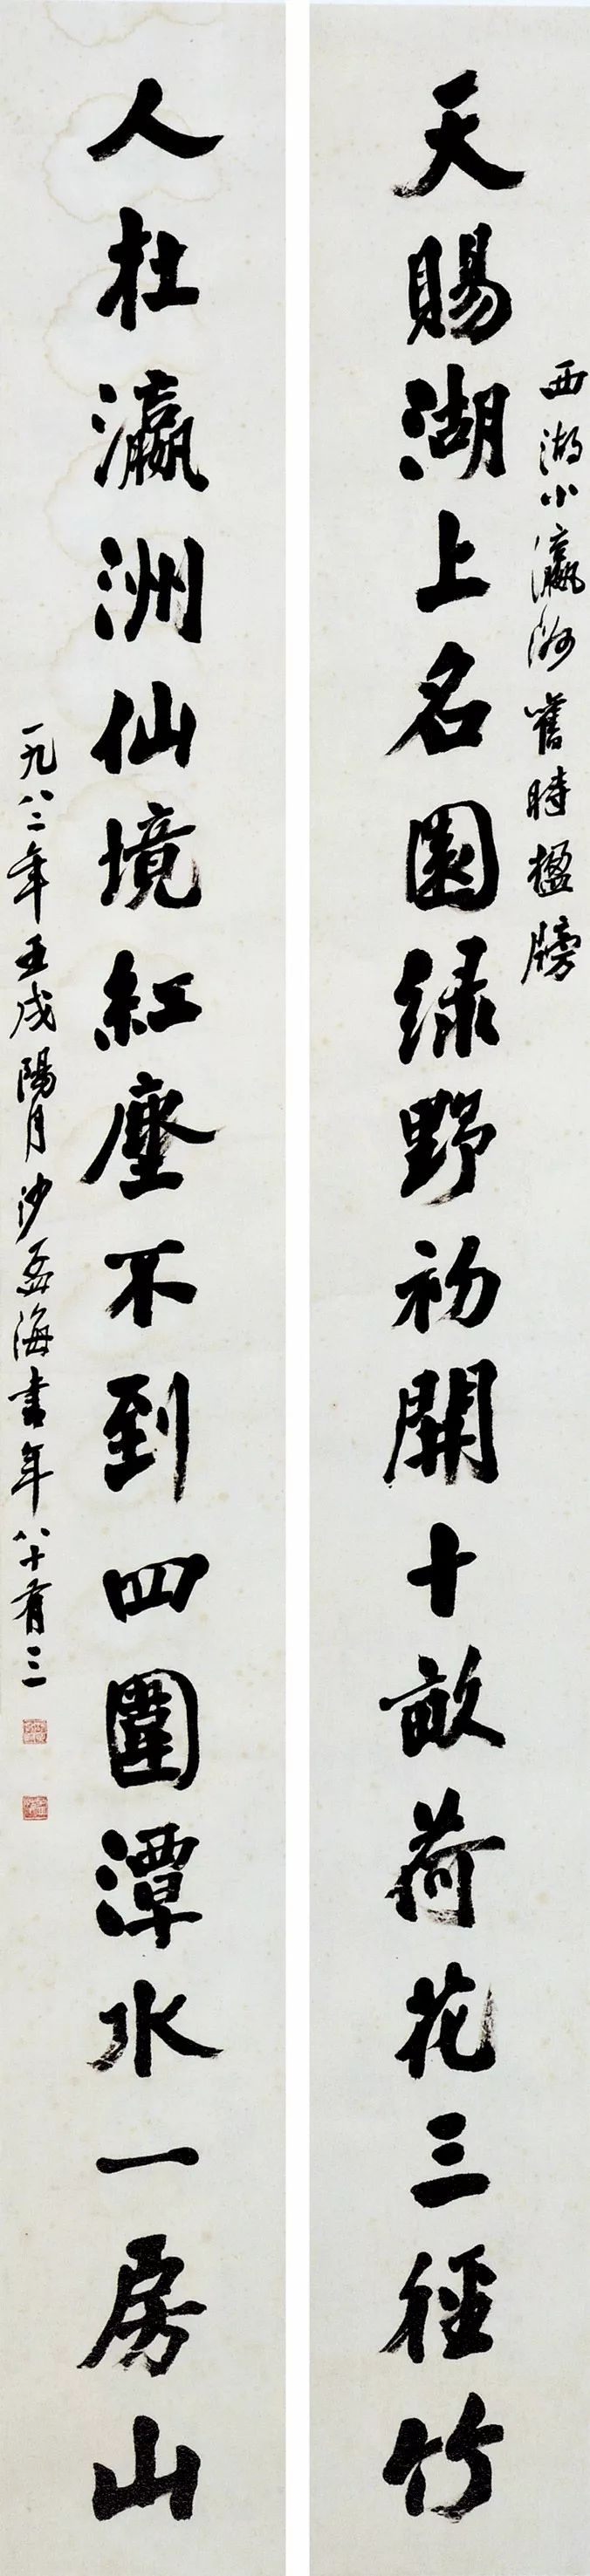 西湖小瀛洲舊時楹牓
天賜湖上名園緑野初開十畝荷花三徑竹
人扗瀛洲仙境紅塵不到四圍潭水一房山
一九八二年壬戌陽月沙孟海書年八十有三